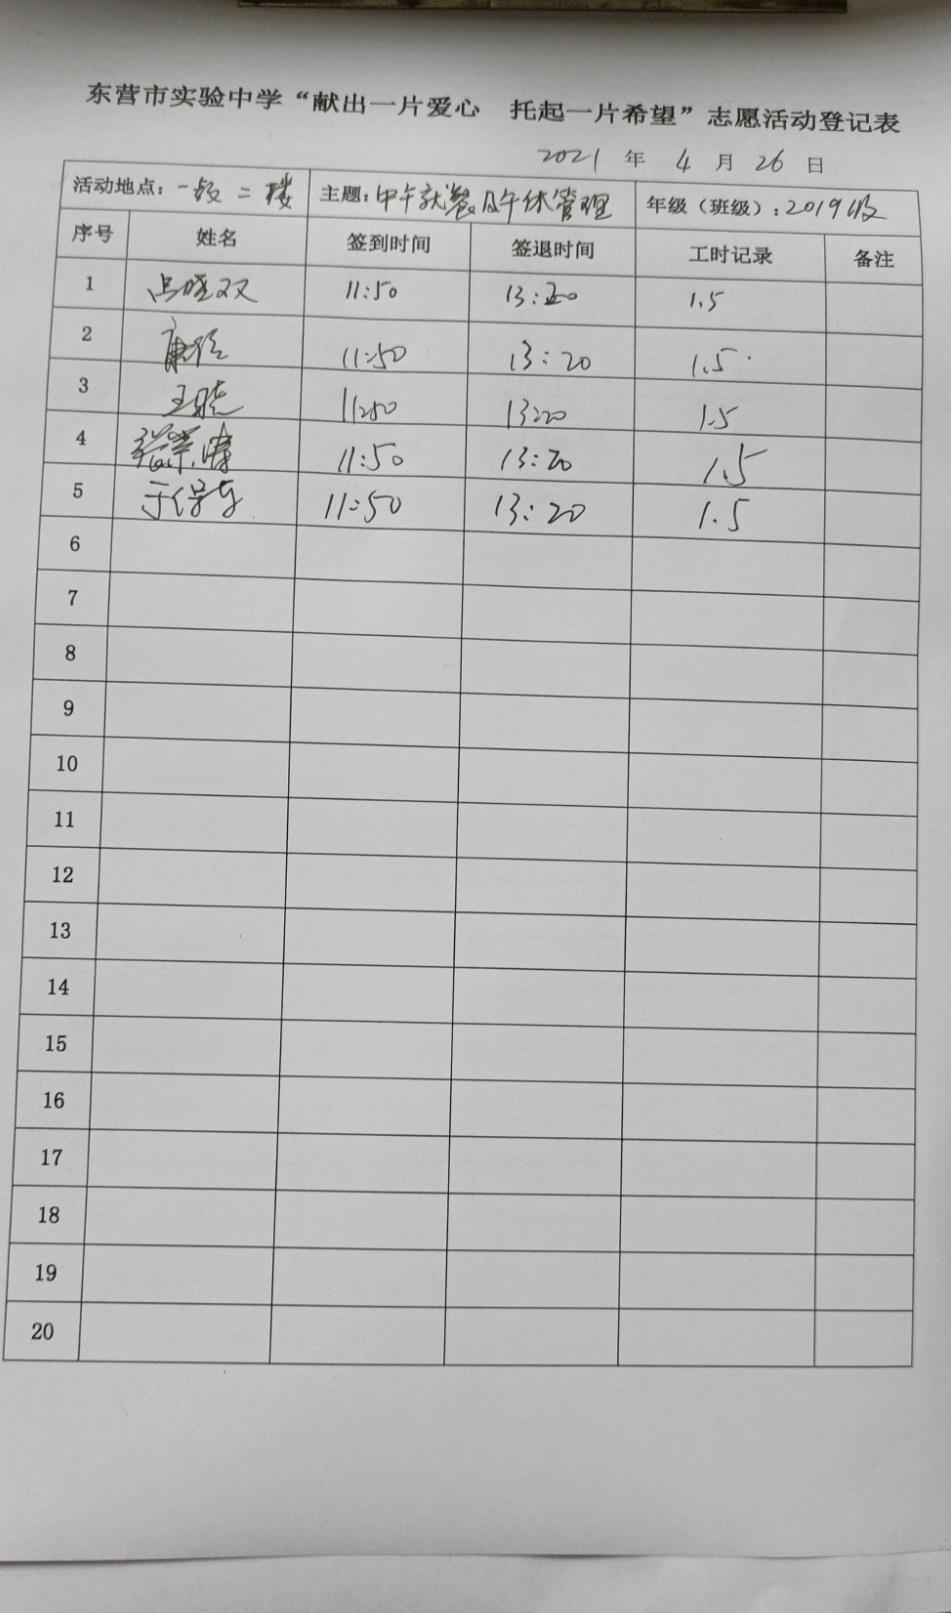 东营市实验中学“献出一片爱心 托起一片希望”志愿活动登记表
2021 年 4 月 26 日
活动地点：一级二楼 主题：中午就餐及午休管理 年级（班级）：2019级
序号 姓名 签到时间 签退时间 工时记录 备注
1 双 11:50 13:20 1.5
2 11:50 13:20 1.5
3 王晓 11:50 13:20 1.5
4 张 11:50 13:20 1.5
5 于保东 11:50 13:20 1.5
6
7
8
9
10
11
12
13
14
15
16
17
18
19
20